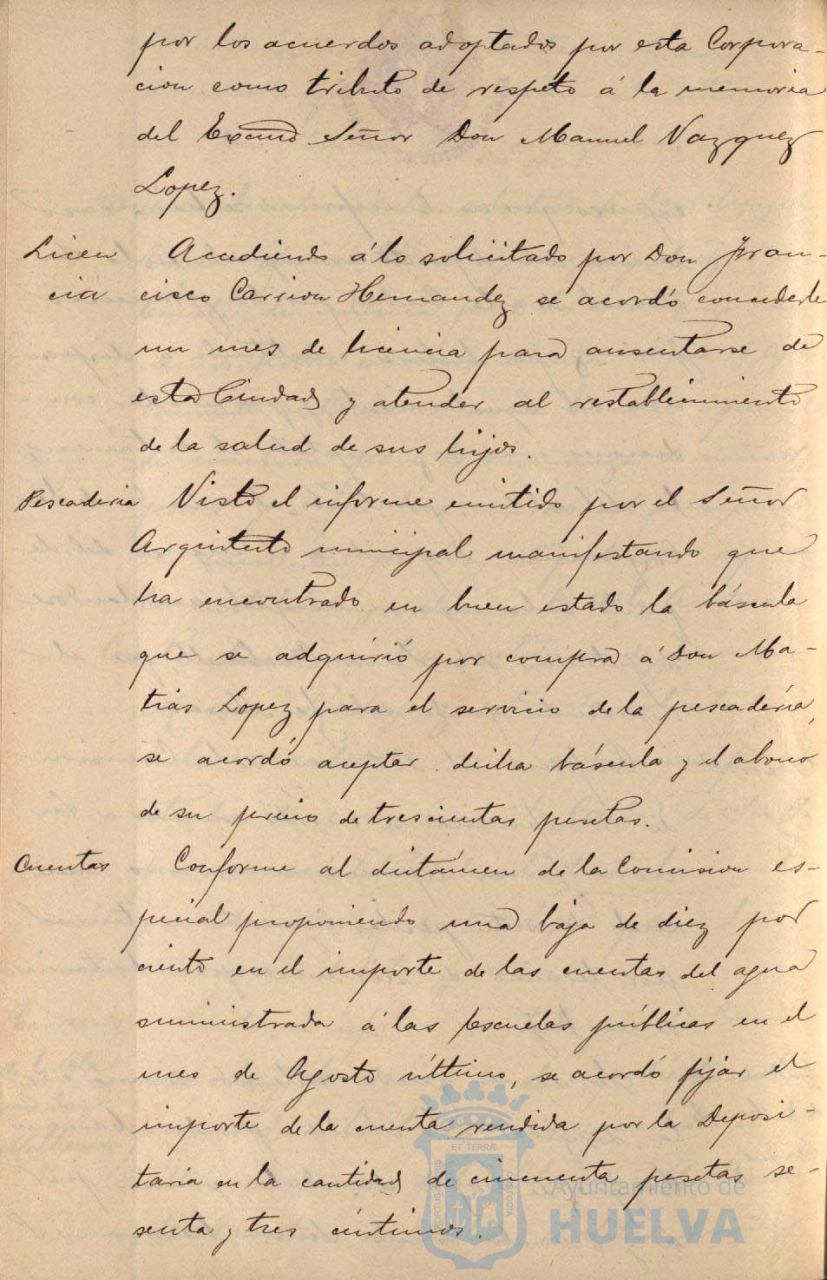 por los acuerdos adoptados por esta Corpora-
cion como tributo de respeto á la memoria
del Excmo Señor Don Manuel Vazquez
Lopez.
Licen
cia
Accediendo á lo solicitado por Don Fran-
cisco Carrion Hernandez se acordó concederle
un mes de licencia para ausentarse de
esta Ciudad y atender al restablecimiento
de la salud de sus hijos.
Pescaderia
Visto el informe emitido por el Señor
Arquitecto municipal manifestando que
ha encontrado en buen estado la báscula
que se adquirió por compra á Don Ma-
tias Lopez para el servicio de la pescadería,
se acordó aceptar dicha báscula y el abono
de su precio de trescientas pesetas.
Cuentas
Conforme al dictámen de la Comision es-
pecial proponiendo una baja de diez por
ciento en el importe de las cuentas del agua
suministrada á las Escuelas públicas en el
mes de Agosto último, se acordó fijar el
importe de la cuenta rendida por la Deposi-
taria en la cantidad de cincuenta pesetas se-
senta y tres céntimos.
ET TERRÆ
Ayuntamiento de
HUELVA